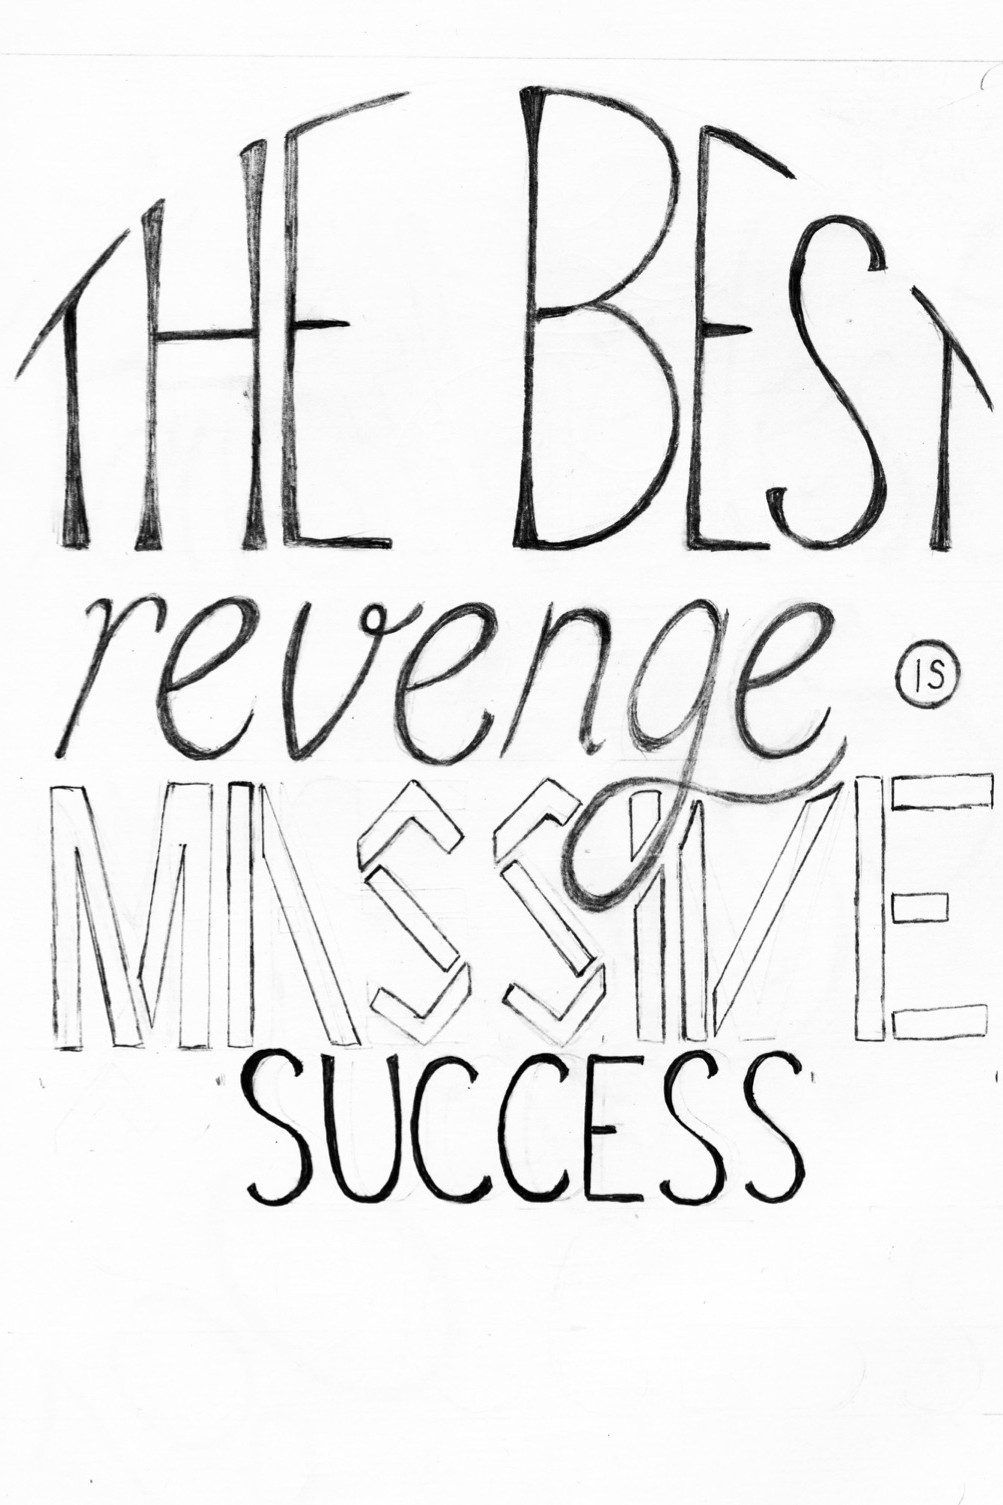 THE BEST
revenge IS
MASSIVE
SUCCESS